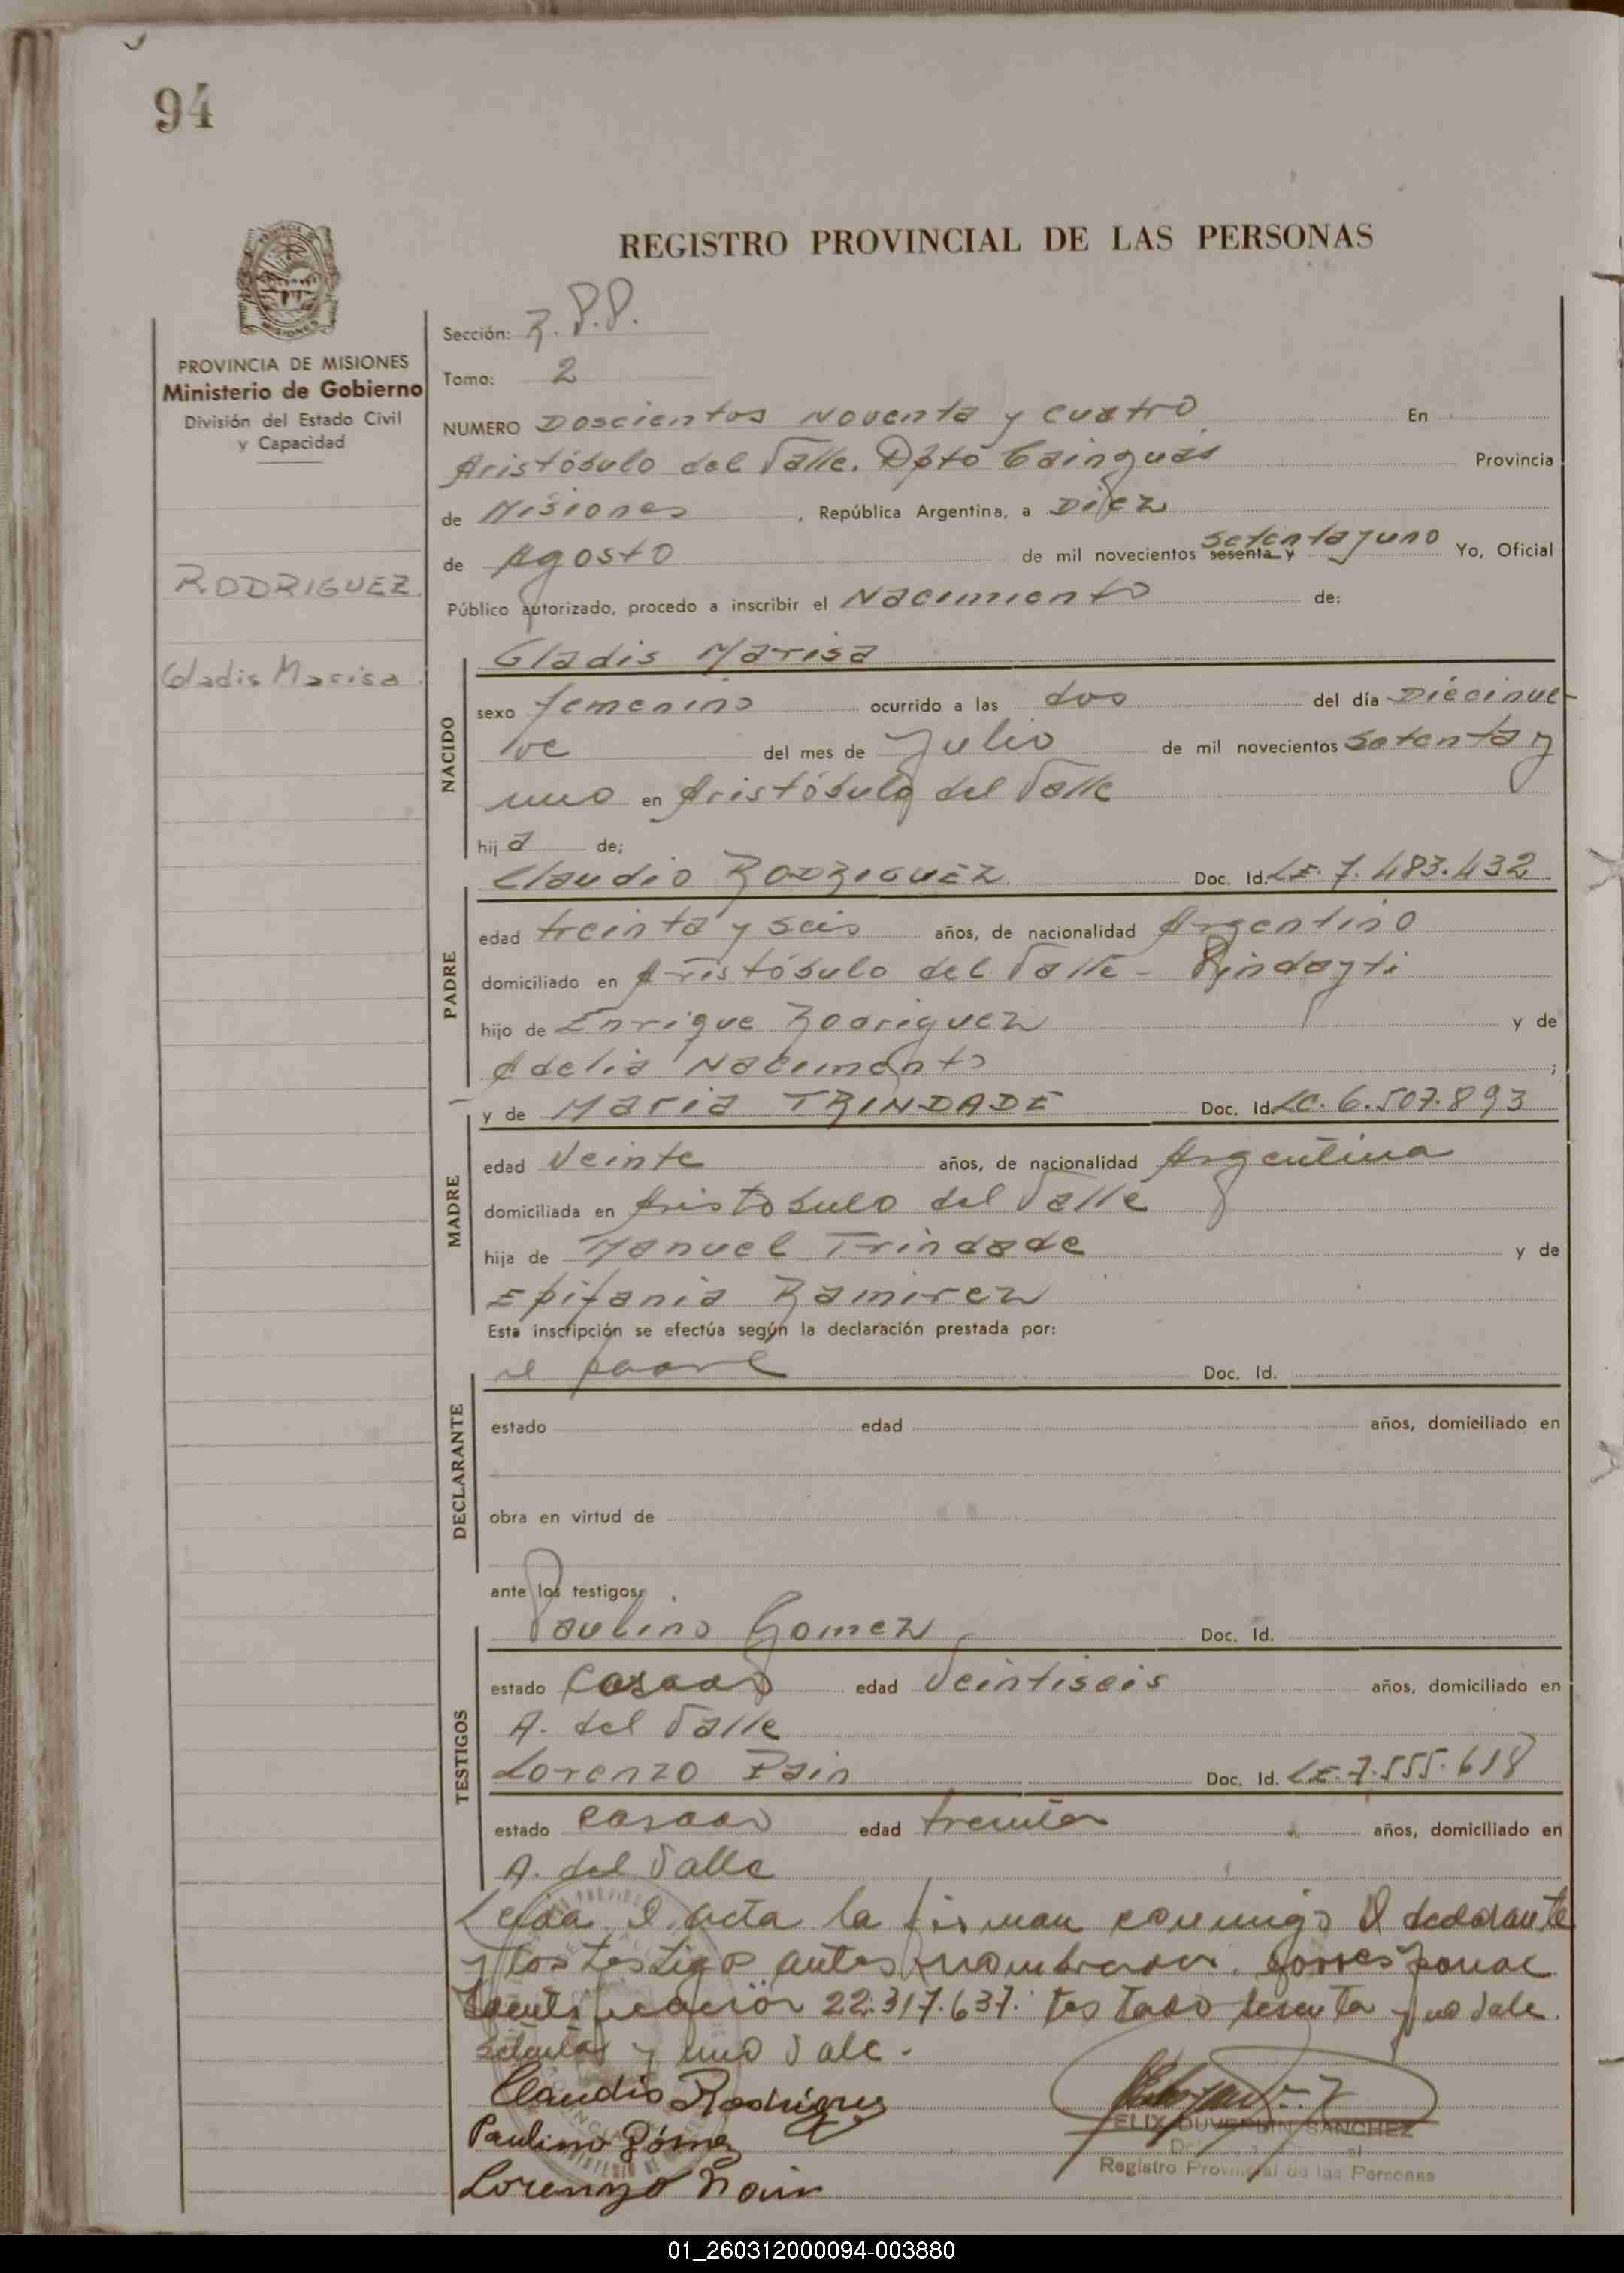 94
REGISTRO PROVINCIAL DE LAS PERSONAS
PROVINCIA DE MISIONES
Ministerio de Gobierno
División del Estado Civil
y Capacidad
RODRIGUEZ.
Gladis Marisa.
Sección: R.P.P.
Tomo: 2
NUMERO Doscientos Noventa y cuatro En
Aristóbulo del Valle. Dpto Cainguás Provincia
de Misiones, República Argentina, a Diez
de Agosto de mil novecientos sesenta y setenta y uno Yo, Oficial
Público autorizado, procedo a inscribir el Nacimiento de:
NACIDO
Gladis Marisa
sexo femenino ocurrido a las dos del día Diecinue-
ve del mes de Julio de mil novecientos setenta y
uno en Aristóbulo del Valle
hija de:
PADRE
Claudio RODRIGUEZ Doc. Id. LE. 7.483.432
edad treinta y seis años, de nacionalidad Argentino
domiciliado en Aristóbulo del Valle - Pindayti
hijo de Enrique Rodriguez y de
Adelia Nacimento;
MADRE
y de Maria TRINDADE Doc. Id. LC. 6.507.893
edad Veinte años, de nacionalidad Argentina
domiciliada en Aristobulo del Valle
hija de Manuel Trindade y de
Epifania Ramirez
Esta inscripción se efectúa según la declaración prestada por:
DECLARANTE
el padre Doc. Id.
estado edad años, domiciliado en
obra en virtud de
ante los testigos:
TESTIGOS
Paulino Gomez Doc. Id.
estado Casado edad Veintiseis años, domiciliado en
A. del Valle
Lorenzo Doc. Id. LE. 7.555.618
estado casado edad treinta años, domiciliado en
A. del Valle
Leida el acta la firman conmigo el declarante
y los testigos antes nombrados. Corresponde
Identificación 22.317.637. Testado sesenta y no vale.
setenta y uno vale.
Claudio Rodriguez
Paulino Gómez
Lorenzo
FELIX DUVERLIN SANCHEZ
Registro Provincial de las Personas
01_260312000094-003880